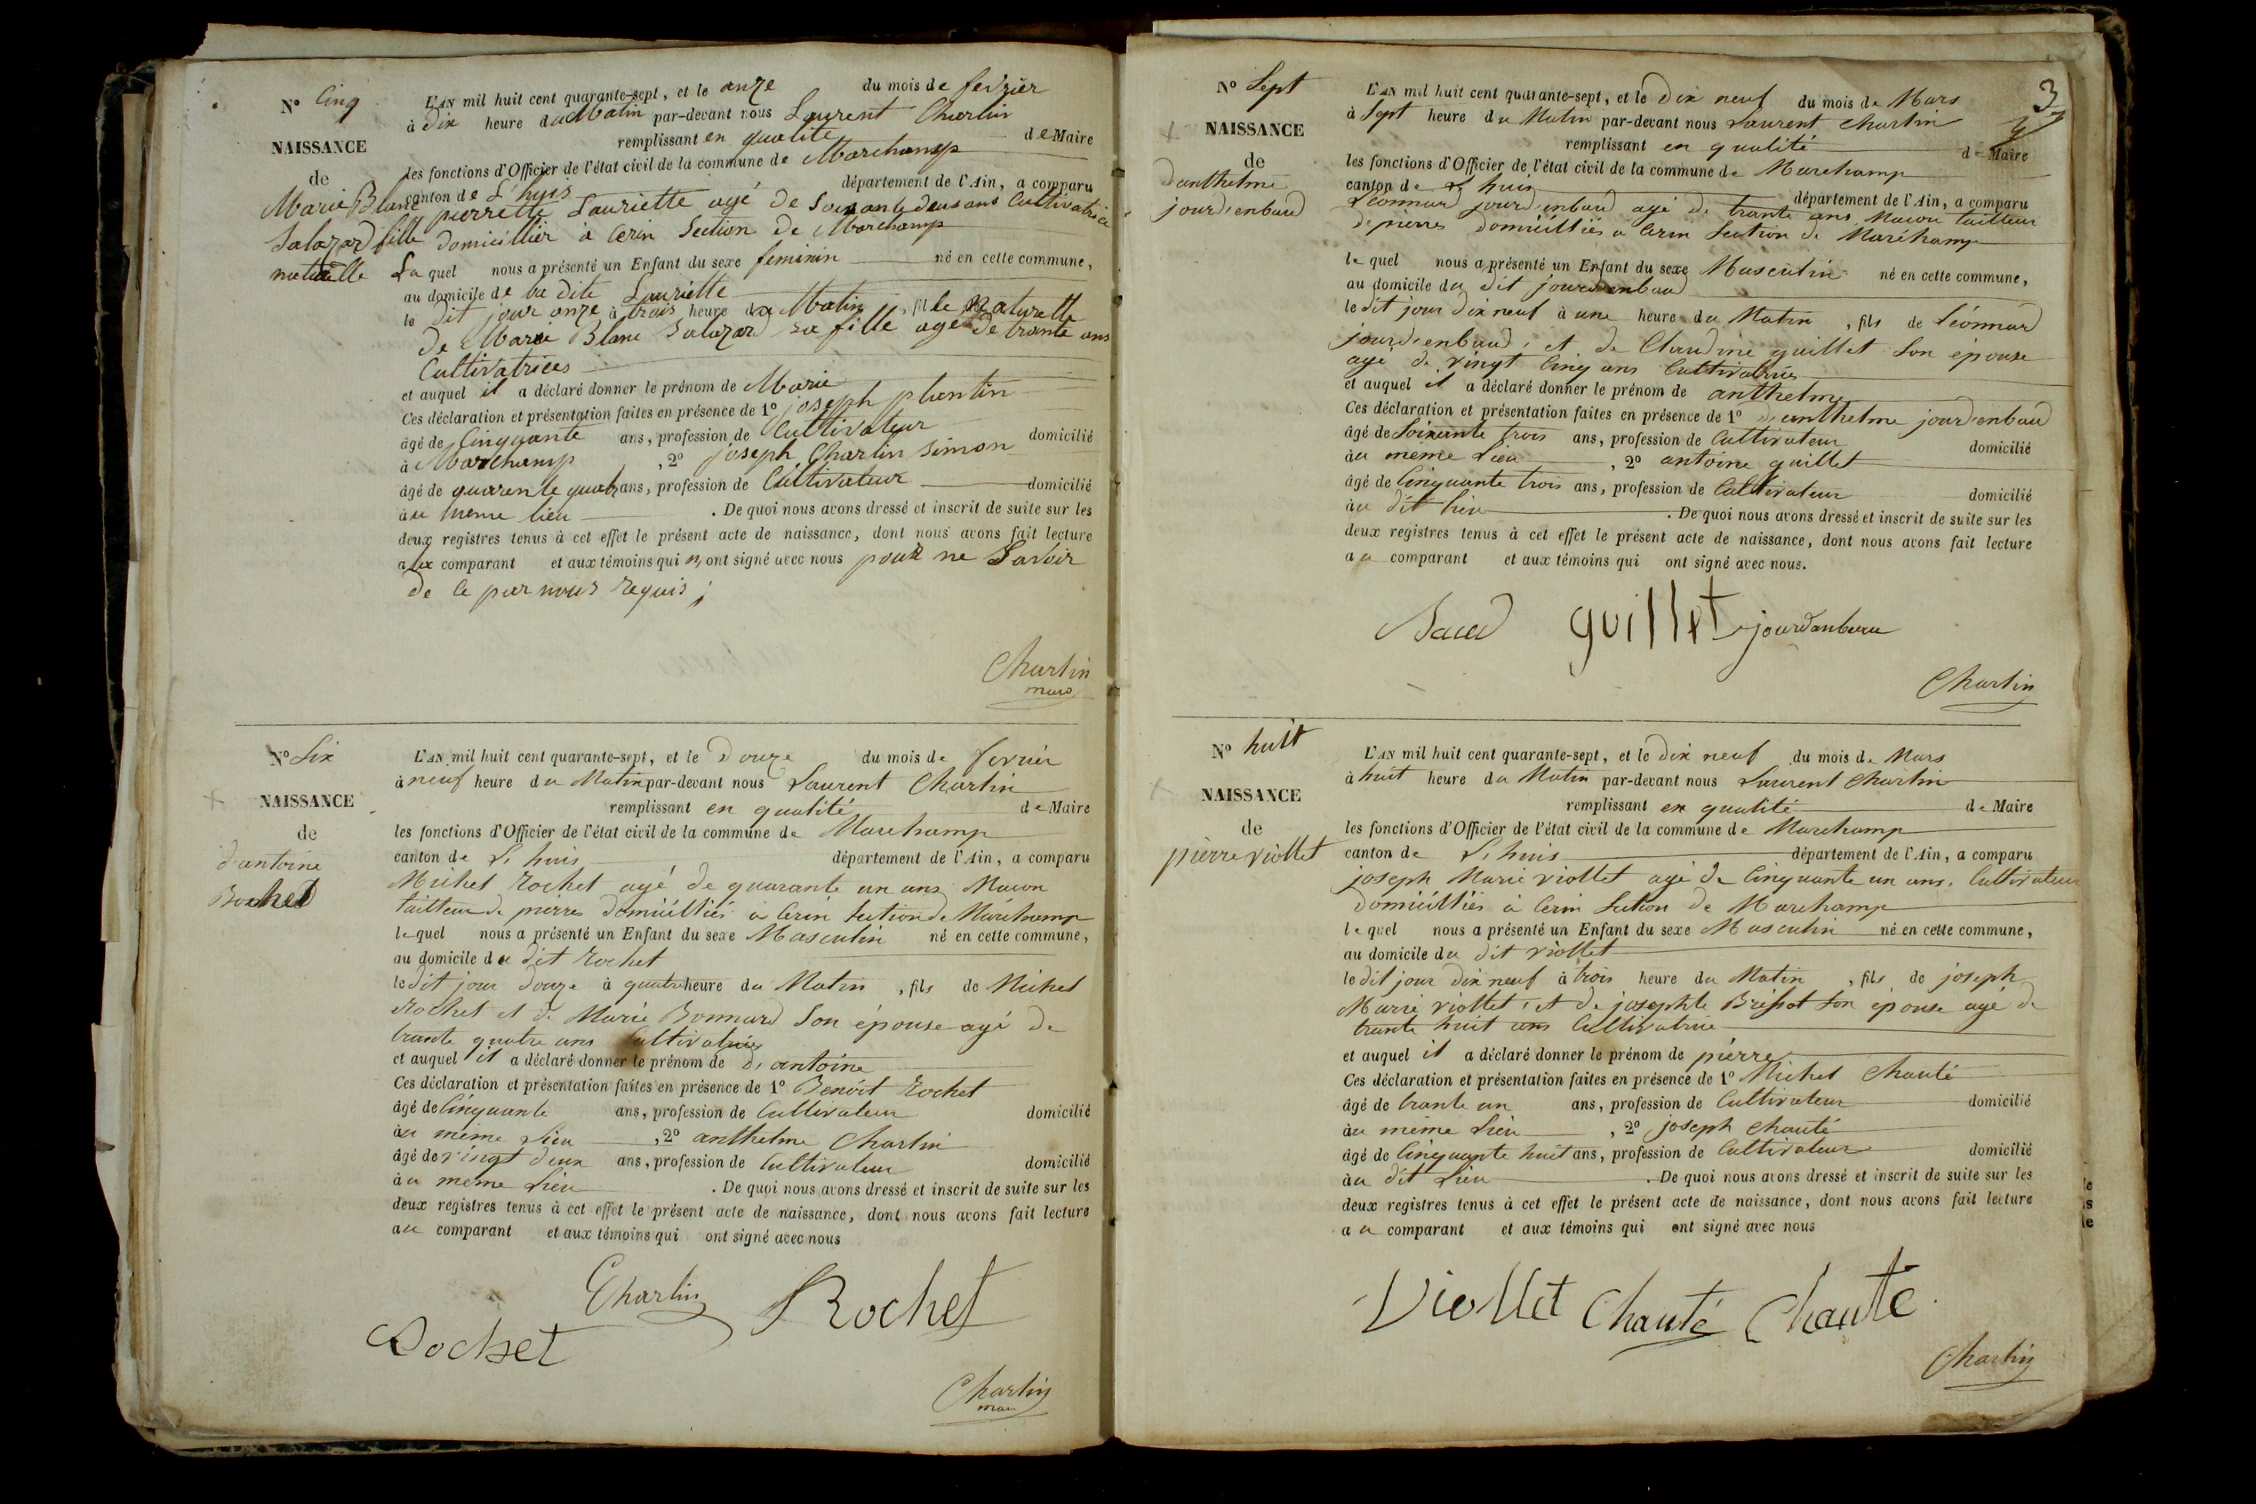 No Cinq
NAISSANCE
de
Marie Blanc
Salazard fille
naturelle
L'AN mil huit cent quarante-sept, et le onze du mois de fevrier
à dix heure du Matin par-devant nous Laurent Charlin
remplissant en qualité de Maire
les fonctions d'Officier de l'état civil de la commune de Marchamp
canton de L'huis département de l'Ain, a comparu
pierrette Lauriette agé de Soixante deux ans Cultivatrice
domicillier à Cerin Section de Marchamp
La quel nous a présenté un Enfant du sexe feminin né en cette commune,
au domicile de la dite Lauriette
le dit jour onze à trois heure du Matin, fille naturelle
De Marie Blanc Salazard sa fille agé de trante ans
Cultivatrices
et auquel il a déclaré donner le prénom de Marie
Ces déclaration et présentation faites en présence de 1o joseph plantin
âgé de Cinquante ans, profession de Cultivateur domicilié
à Marchamp, 2o joseph Charlin Simon
âgé de quarente quatr ans, profession de Cultivateur domicilié
àu meme lieu. De quoi nous avons dressé et inscrit de suite sur les
deux registres tenus à cet effet le présent acte de naissance, dont nous avons fait lecture
aux comparant et aux témoins qui n'ont signé avec nous pour ne Savoir
de Ce par nous requis;
Charlin
maire
No Six
NAISSANCE
de
d'antoine
Rochet
L'AN mil huit cent quarante-sept, et le Douze du mois de fevrier
à neuf heure du Matin par-devant nous Laurent Charlin
remplissant en qualité de Maire
les fonctions d'Officier de l'état civil de la commune de Marchamp
canton de L'huis département de l'Ain, a comparu
Michel Rochet agé de quarante un ans Macon
tailleur de pierres domiciélliés à Cerin Section de Marchamp
le quel nous a présenté un Enfant du sexe Masculin né en cette commune,
au domicile du dit Rochet
le dit jour Douze à quatre heure du Matin, fils de Michel
Rochet et de Marie Bonnard Son épouse agé de
trante quatre ans Cultivatrice
et auquel il a déclaré donner le prénom de d'antoine
Ces déclaration et présentation faites en présence de 1o Benoit Rochet
âgé de Cinquante ans, profession de Cultivateur domicilié
àu même Lieu, 2o anthelme Charlin
âgé de vingt deux ans, profession de Cultivateur domicilié
àu même Lieu. De quoi nous avons dressé et inscrit de suite sur les
deux registres tenus à cet effet le présent acte de naissance, dont nous avons fait lecture
au comparant et aux témoins qui ont signé avec nous
Charlin Rochet
Rochet
Charlin
maire
3
No Sept
NAISSANCE
de
d'anthelme
jourd'enbaud
L'AN mil huit cent quarante-sept, et le Dix neuf du mois de Mars
à Sept heure du Matin par-devant nous Laurent Charlin
remplissant en qualité de Maire
les fonctions d'Officier de l'état civil de la commune de Marchamp
canton de L'huis département de l'Ain, a comparu
Léonnard jourd'enbaud agé de trante ans Macon tailleur
de pierres domiciélliés a Cerin Section de Marchamp
le quel nous a présenté un Enfant du sexe Masculin né en cette commune,
au domicile du dit jourd'enbaud
le dit jour dix neuf à une heure du Matin, fils de Léonnard
jourd'enbaud, et de Claudine guillet Son épouse
agé de vingt Cinq ans Cultivatrice
et auquel il a déclaré donner le prénom de anthelme
Ces déclaration et présentation faites en présence de 1o d'anthelme jourd'enbaud
âgé de Soixante trois ans, profession de Cultivateur domicilié
àu meme Lieu, 2o antoine guillet
âgé de Cinquante trois ans, profession de Cultivateur domicilié
àu dit lieu. De quoi nous avons dressé et inscrit de suite sur les
deux registres tenus à cet effet le présent acte de naissance, dont nous avons fait lecture
au comparant et aux témoins qui ont signé avec nous.
guillet
Charlin
No huit
NAISSANCE
de
pierre viollet
L'AN mil huit cent quarante-sept, et le Dix neuf du mois de Mars
à huit heure du Matin par-devant nous Laurent Charlin
remplissant en qualité de Maire
les fonctions d'Officier de l'état civil de la commune de Marchamp
canton de L'huis département de l'Ain, a comparu
joseph Marie viollet agé de Cinquante un ans, Cultivateur
domiciélliés à Cerin Section de Marchamp
le quel nous a présenté un Enfant du sexe Masculin né en cette commune,
au domicile du dit viollet
le dit jour dix neuf à trois heure du Matin, fils de joseph
Marie viollet, et de josephte Brissot Son épouse agé de
trante huit ans Cultivatrice
et auquel il a déclaré donner le prénom de pierre
Ces déclaration et présentation faites en présence de 1o Michel Chanté
âgé de trante un ans, profession de Cultivateur domicilié
àu même Lieu, 2o joseph Chanté
âgé de Cinquante huit ans, profession de Cultivateur domicilié
àu dit Lieu. De quoi nous avons dressé et inscrit de suite sur les
deux registres tenus à cet effet le présent acte de naissance, dont nous avons fait lecture
au comparant et aux témoins qui ont signé avec nous
Viollet Chanté Chante
Charlin